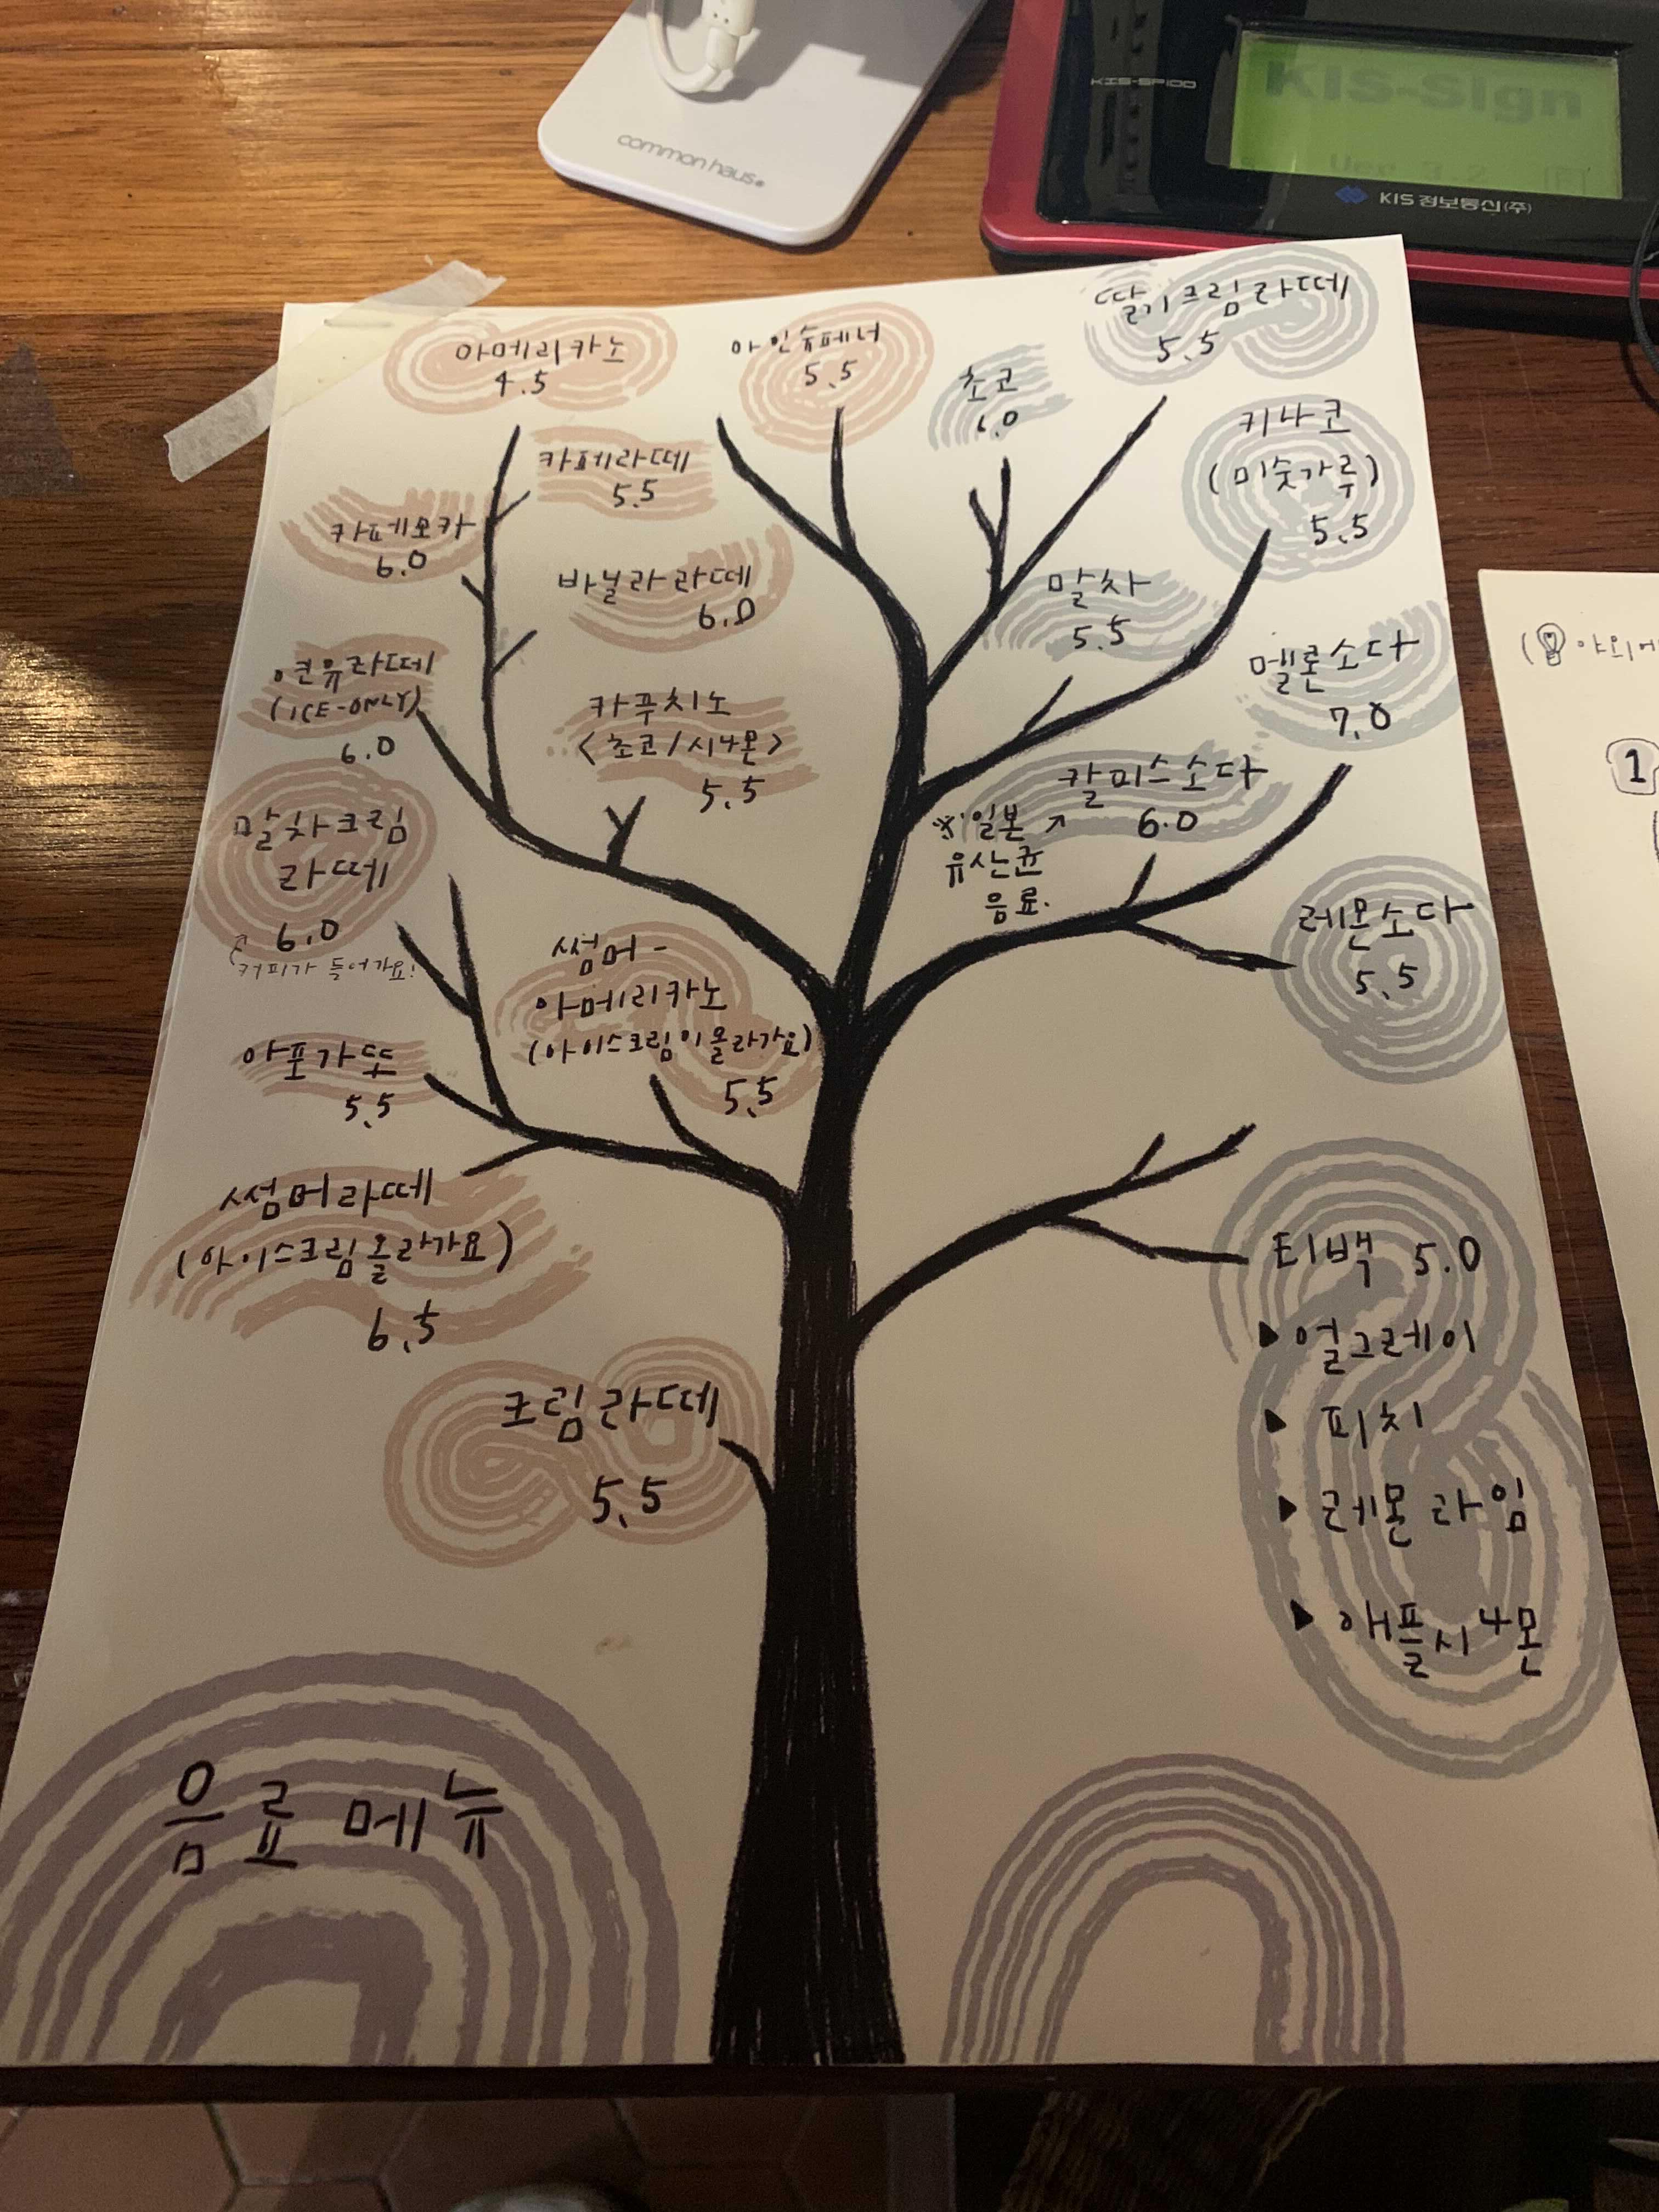 common haus.
KIS-SP100
KIS-Sign
KIS 정보통신(주)
아메리카노
4.5
아인슈페너
5.5
딸기크림라떼
5.5
초코
6.0
카페라떼
5.5
키나코
(미숫가루)
5.5
카페모카
6.0
바닐라라떼
6.0
말차
5.5
멜론소다
7.0
연유라떼
(ICE-ONLY)
6.0
카푸치노
<초코/시나몬>
5.5
칼피스소다
6.0
※일본 ↗
유산균
음료.
말차크림
라떼
6.0
커피가 들어가요!
썸머-
아메리카노
(아이스크림이올라가요)
5.5
레몬소다
5.5
아포가또
5.5
썸머라떼
(아이스크림올라가요)
6.5
티백 5.0
▶얼그레이
▶ 피치
▶ 레몬라임
▶ 애플시나몬
크림라떼
5.5
음료 메뉴
야외에
1